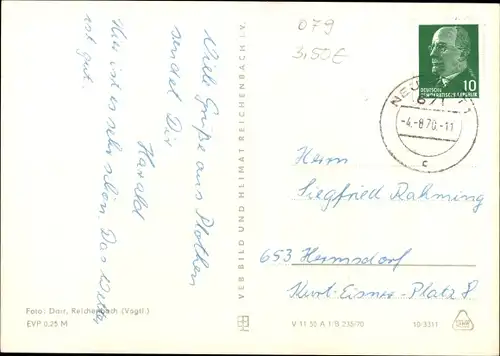 Viele Grüße aus Plothen
sendet Dir
Harald
Hier ist es sehr schön. Das Wetter
ist gut.
Foto: Darr, Reichenbach (Vogtl.)
EVP 0,25 M
VEB BILD UND HEIMAT REICHENBACH i. V.
V 11 50 A 1/B 235/70
10/3311
079
3,50€
10
DEUTSCHE
DEMOKRATISCHE REPUBLIK
671
-4.-8.70.-11
c
Herrn
Siegfried Rahming
653 Hermsdorf
Kurt-Eisner-Platz 8